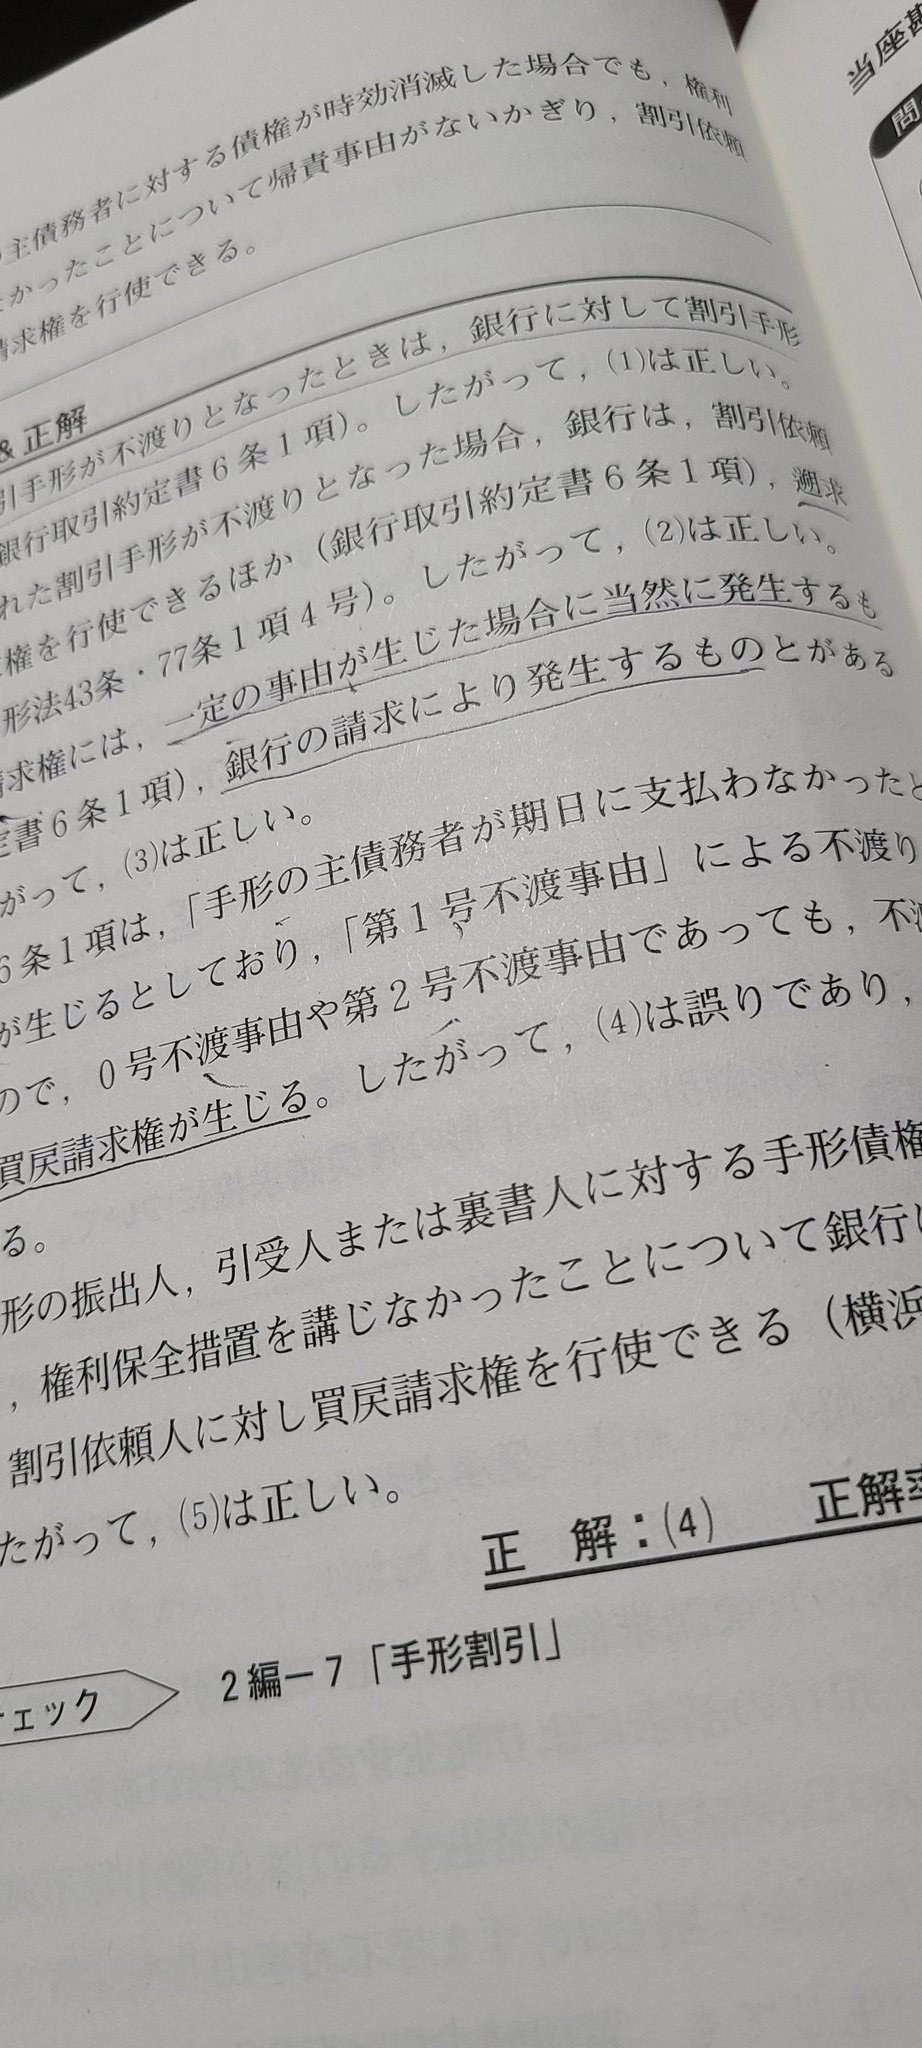 主債務者に対する債権が時効消滅した場合でも，権利
かったことについて帰責事由がないかぎり，割引依頼
請求権を行使できる。
＆正解
引手形が不渡りとなったときは，銀行に対して割引手形
銀行取引約定書６条１項）。したがって，⑴は正しい。
れた割引手形が不渡りとなった場合，銀行は，割引依頼
権を行使できるほか（銀行取引約定書６条１項），遡求
形法43条・77条１項４号）。したがって，⑵は正しい。
求権には，一定の事由が生じた場合に当然に発生するも
銀行の請求により発生するものとがある
定書６条１項），
がって，⑶は正しい。
６条１項は，「手形の主債務者が期日に支払わなかったと
が生じるとしており，「第１号不渡事由」による不渡り
ので，０号不渡事由や第２号不渡事由であっても，不渡
買戻請求権が生じる。したがって，⑷は誤りであり，
る。
形の振出人，引受人または裏書人に対する手形債権
，権利保全措置を講じなかったことについて銀行に
割引依頼人に対し買戻請求権を行使できる（横浜
たがって，⑸は正しい。
正　解：⑷　正解率
チェック　２編－７「手形割引」
当座勘
問